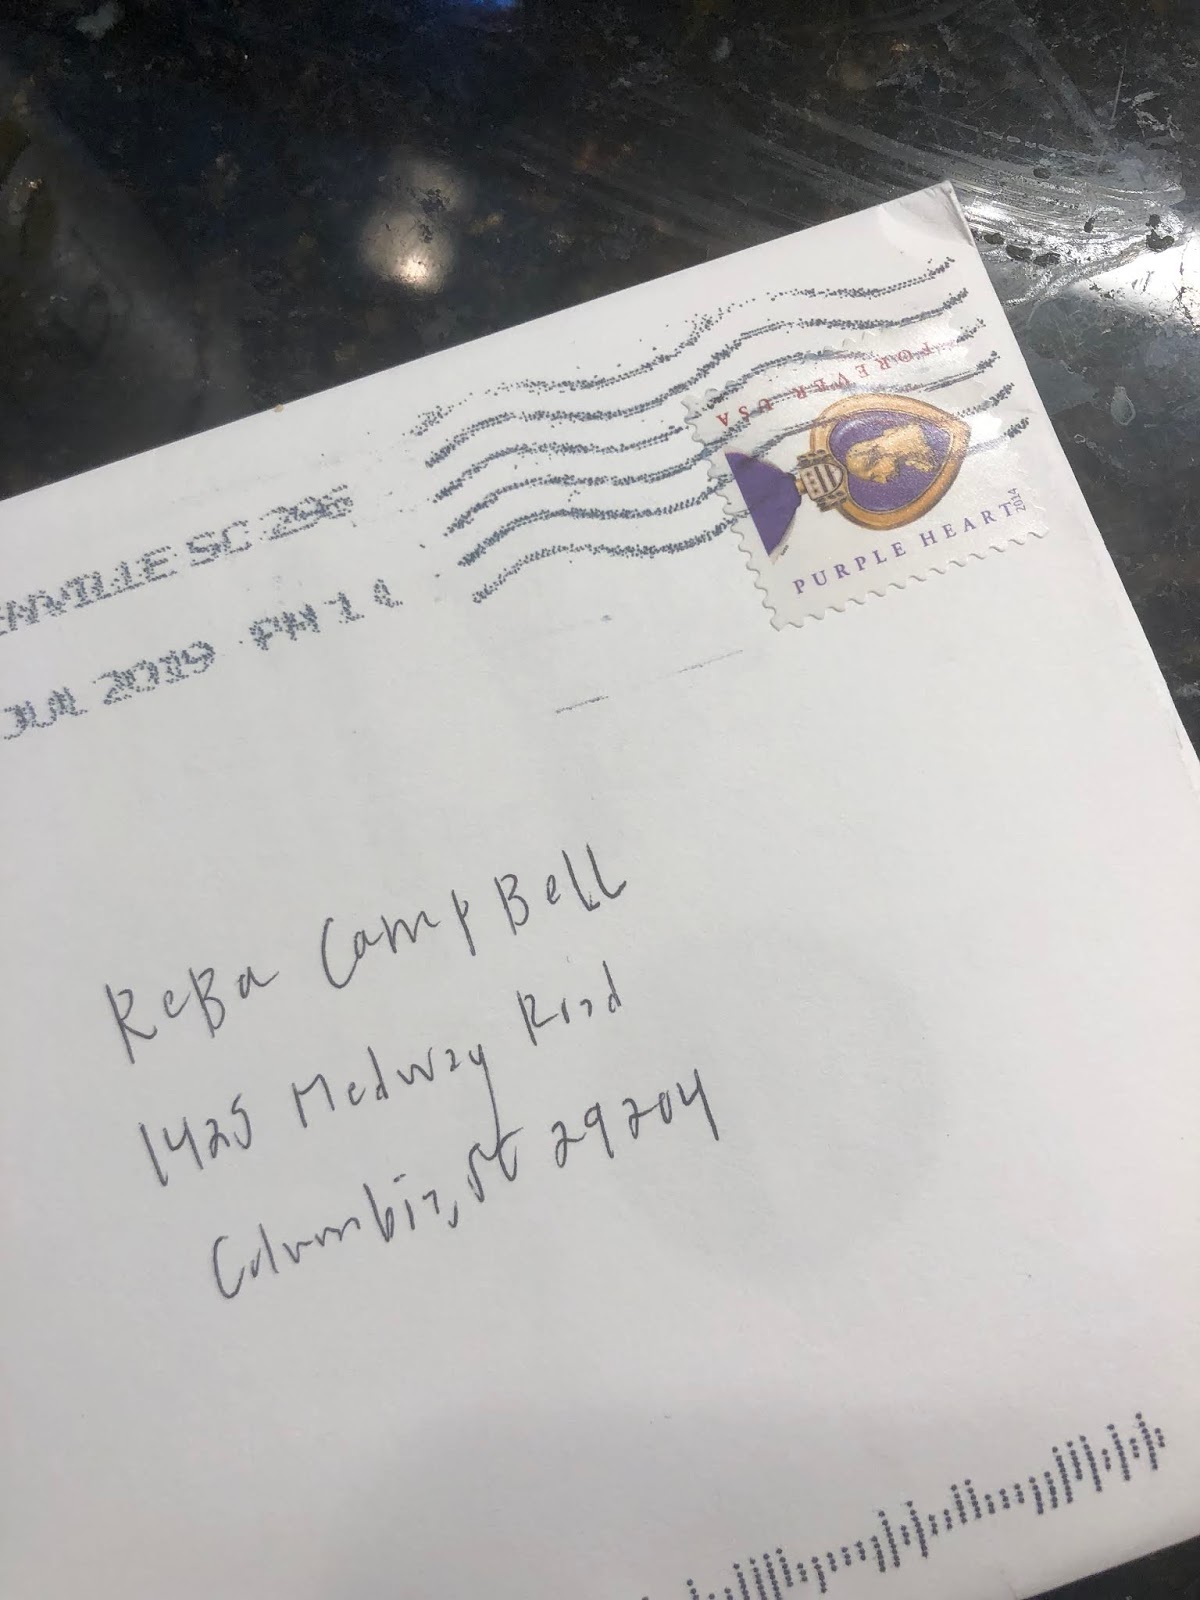 FOREVER USA
PURPLE HEART
2014
ENVILLE SC 296
JUL 2019 PM 1 L
ReBa CampBell
1425 Medway Road
Columbia, SC 29204